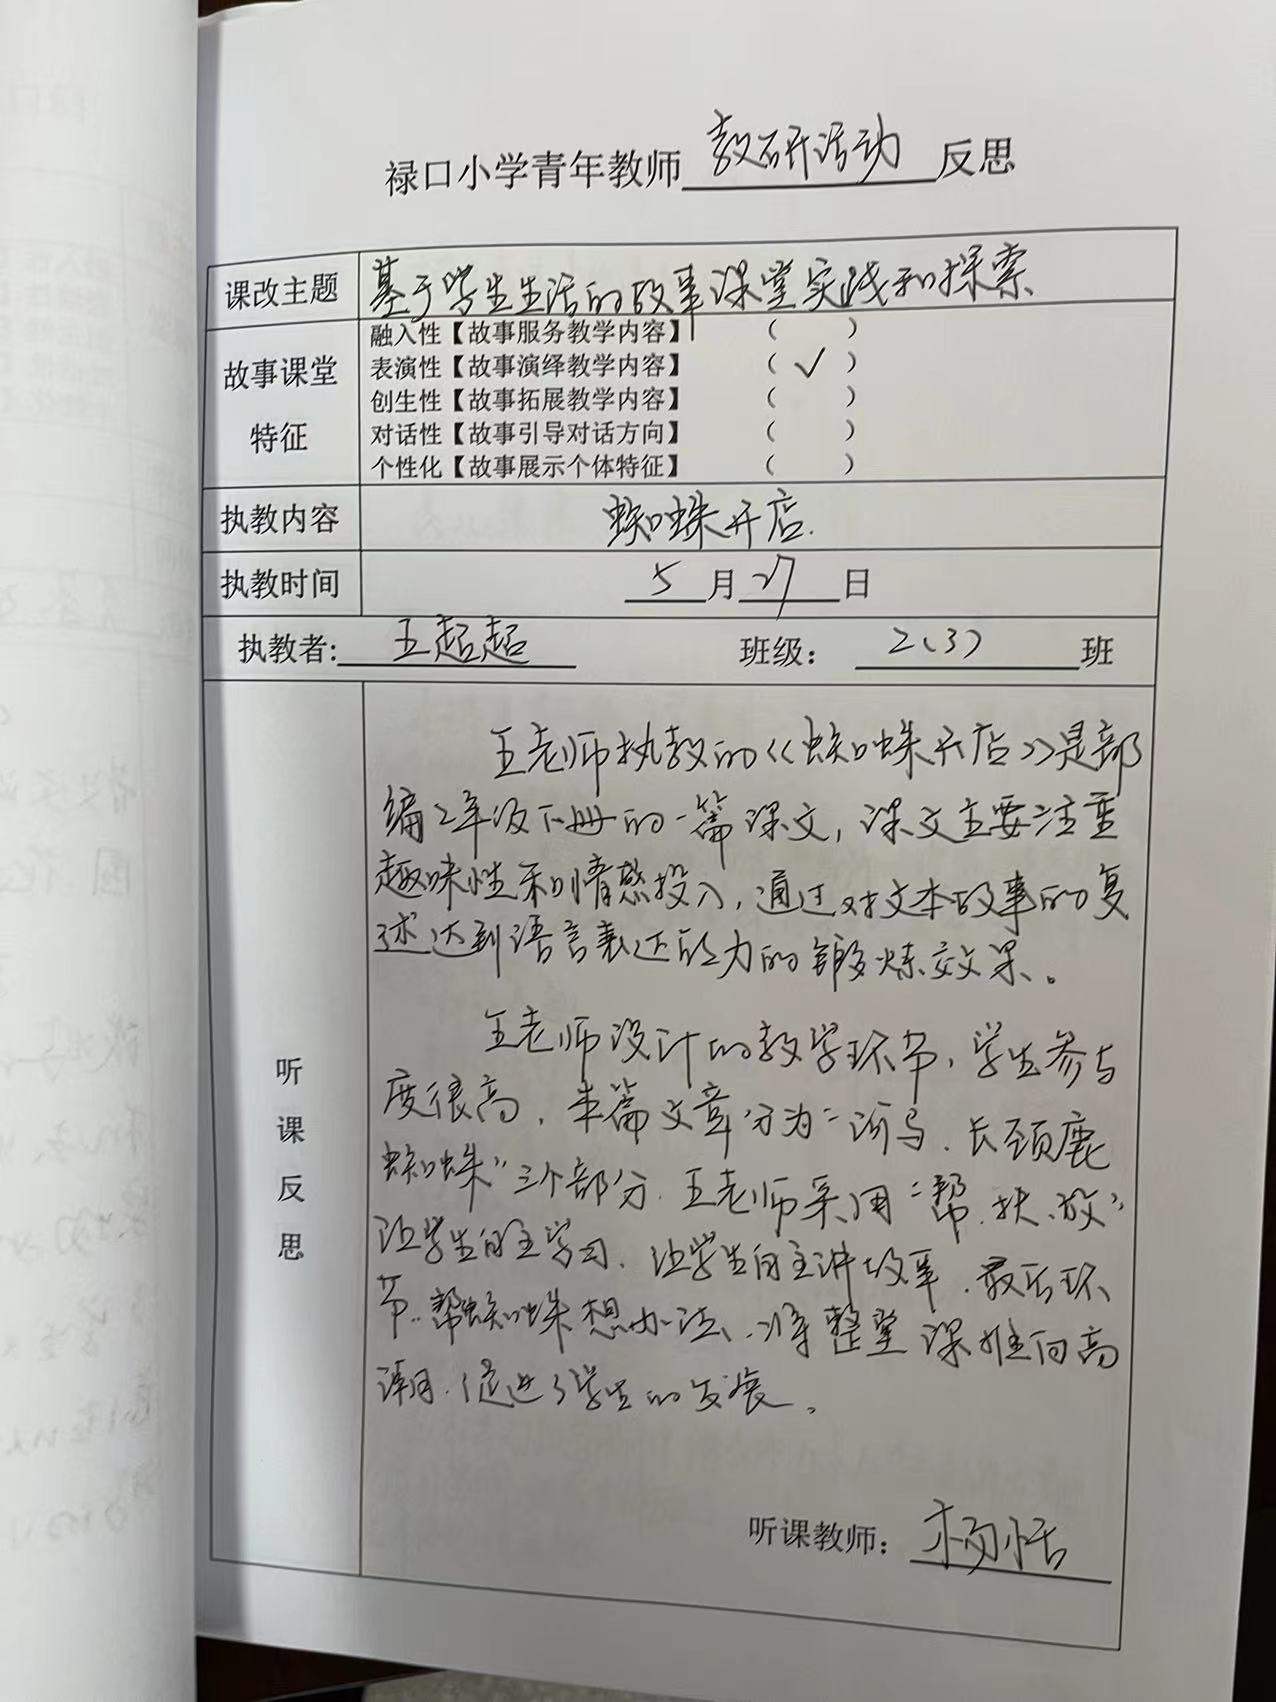 禄口小学青年教师教研活动反思
课改主题 基于学生生活的故事课堂实践和探索
故事课堂
特征
融入性【故事服务教学内容】 （ ）
表演性【故事演绎教学内容】 （√）
创生性【故事拓展教学内容】 （ ）
对话性【故事引导对话方向】 （ ）
个性化【故事展示个体特征】 （ ）
执教内容 蜘蛛开店.
执教时间 5月27日
执教者: 王超超 班级： 2(3)班
听课反思
王老师执教的《蜘蛛开店》是部
编2年级下册的一篇课文，课文主要注重
趣味性和情感投入，通过对文本故事的复
述达到语言表达能力的锻炼效果。
王老师设计的教学环节，学生参与
度很高，本篇文章分为“河马、长颈鹿
蜘蛛”三个部分，王老师采用“帮、扶、放”
让学生自主学习，让学生自主讲故事，最后环
节，帮蜘蛛想办法，将整堂课推向高
潮，促进了学生的发展。
听课教师： 杨恬